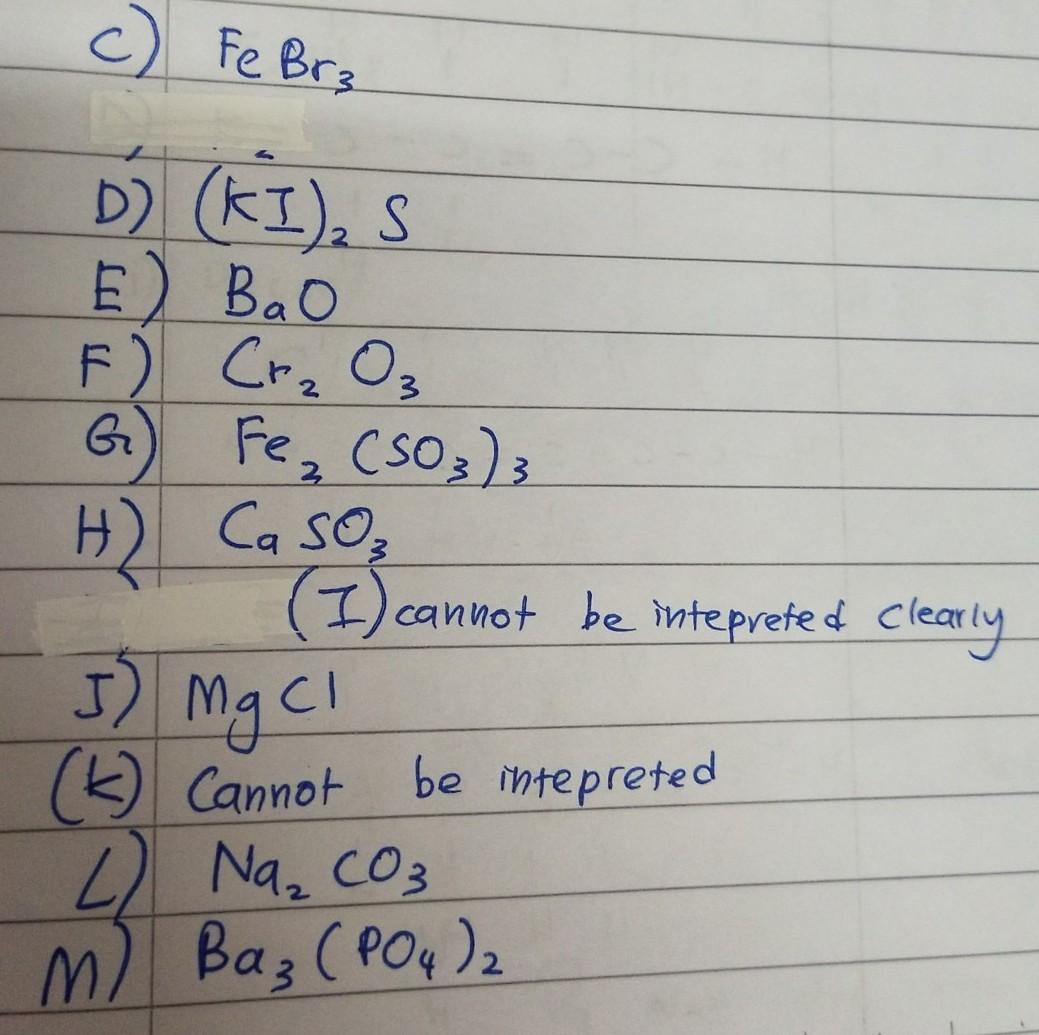 C) FeBr₃
D) (KI)₂ S
E) BaO
F) Cr₂ O₃
G) Fe₂ (SO₃)₃
H) Ca SO₃
(I) cannot be intepreted clearly
J) MgCl
(K) Cannot be intepreted
L) Na₂ CO₃
M) Ba₃ (PO₄)₂